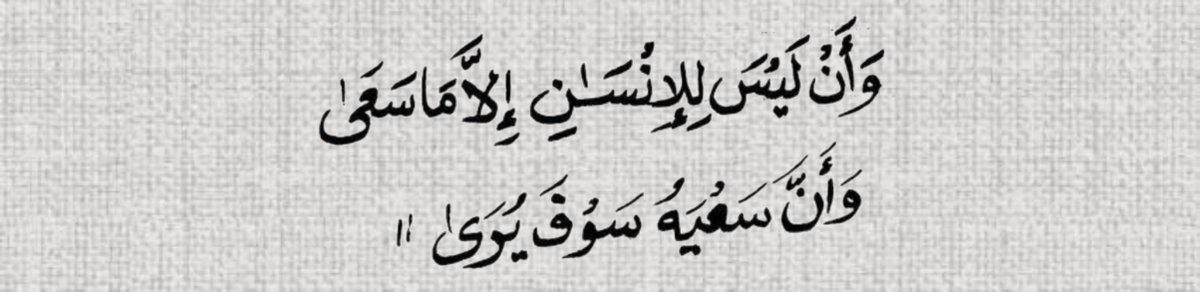 وَأَنْ لَيْسَ لِلإِنْسَـٰنِ إِلاَّ مَا سَعَىٰ
وَأَنَّ سَعْيَهُ سَوْفَ يُرَىٰ "